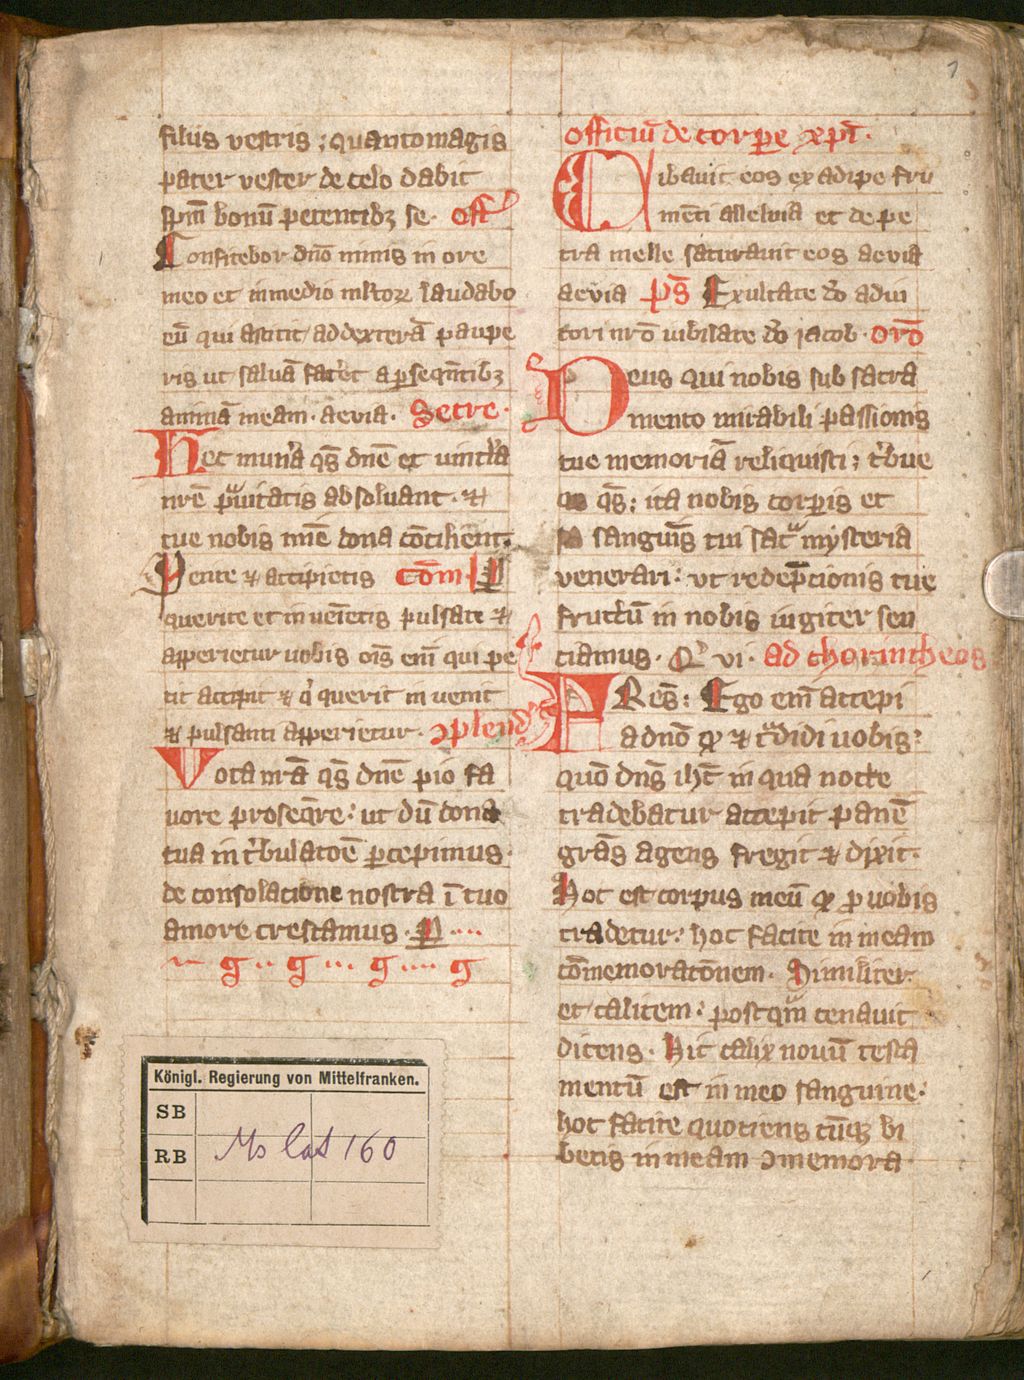 filiis vestris ; quanto magis
pater vester de celo dabit
sp̄m bonū petentibꝫ se · off̄
Confitebor dn̄o nimis in ore
meo et in medio mltoꝝ laudabo
eū qui astitit ad dexterā paupe
ris ut saluā facēt a ꝑseqn̄tibꝫ
animā meam · aevia · Secre ·
Hec mun̄a qs̄ dn̄e et uincl̄a
nr̄e pͣuitatis absoluant · ⁊
tue nobis mīe dona cōcilient ·
Petite ⁊ accipietis cōm
querite et inueīetis pulsate ⁊
apperietur uobis oīs em̄ qui pe
tit accipit ⁊ qͥ querit inuenit
⁊ pulsanti apperietur · ꝯplend̄
Vota nr̄a qs̄ dn̄e pio fa
uore proseqr̄e : ut dū dona
tua in tͥbulatōe ꝑcepimus ·
de consolacione nostra ī tuo
amore crescamus ·
officiū de corꝑe xp̄i ·
Cibauit eos ex adipe fru
mēti alleluia et de pe
tra melle saturauit eos aevia
aevia ps̄ Exultate dō adiu
tori nr̄o iubilate dō jacob · orō
Deus qui nobis sub sacra
mento mirabili passionis
tue memoriā reliquisti ; tͥbue
qs̄ ; ita nobis corꝑis et
sanguīs tui sacͣ mysteria
venerari : ut redēpcionis tue
fructū in nobis iugiter sen
ciamus · vi · ad chorintheos
FRes̄ : Ego em̄ accepi
a dn̄o ꝙ ⁊ tͣdidi uobis :
quō dn̄s ih̄c in qua nocte
tradebatur accepit panē
grās agens fregit ⁊ dixit ·
Hoc est corpus meū ꝙ ꝓ uobis
tradetur : hoc facite in meam
cōmemoracōnem · Similiter
et calicem : postqͣm cenauit
dicens · Hic calix nouū testa
mentū est in meo sanguine ·
hoc facite quotiens cūqꝫ bi
betis in meam ꝯmemora ·
Königl. Regierung von Mittelfranken.
SB
RB Ms lat 160